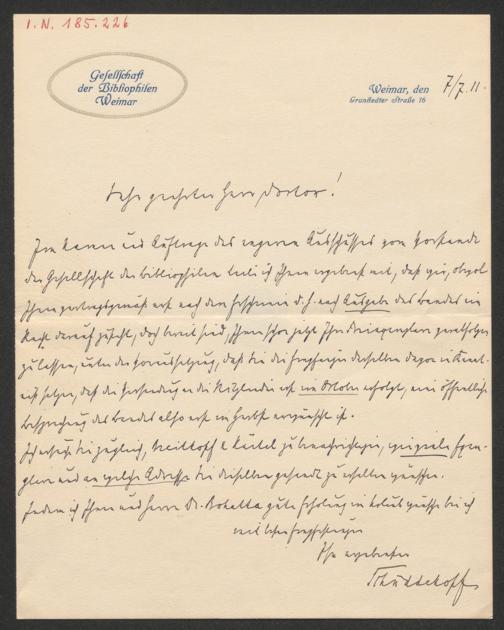 I.N. 185.226
Gesellschaft
der Bibliophilen
Weimar
Weimar, den 7/7. 11.
Grunstedter Straße 16
Sehr geehrter Herr Doctor!
Im Namen und Auftrage des engeren Ausschusses vom Vorstande
der Gesellschaft der Bibliophilen teile ich Ihnen ergebenst mit, daß wir, obgleich
Ihnen vertragsgemäß erst nach dem Erscheinen d. h. nach Ausgabe des Bandes ein
Recht darauf zusteht, doch bereit sind, Ihnen schon jetzt Ihre Freiexemplare
zu lassen, unter der Voraussetzung, daß Sie die Empfänger derselben davon in Kennt-
nis setzen, daß die Versendung an die Mitglieder erst im Oktober erfolgt, eine öffentliche
Besprechung des Bandes also erst im Herbst erwünscht ist.
Ich ersuche Sie zugleich, Breitkopf & Härtel zu benachrichtigen, wieviele Exem-
plare und an welche Adresse Sie dieselben gesandt zu erhalten wünschen.
Indem ich Ihnen und Herrn Dr. gute Erholung in wünsche bin ich
mit besten Empfehlungen
Ihr ergebenster
Schüddekopf